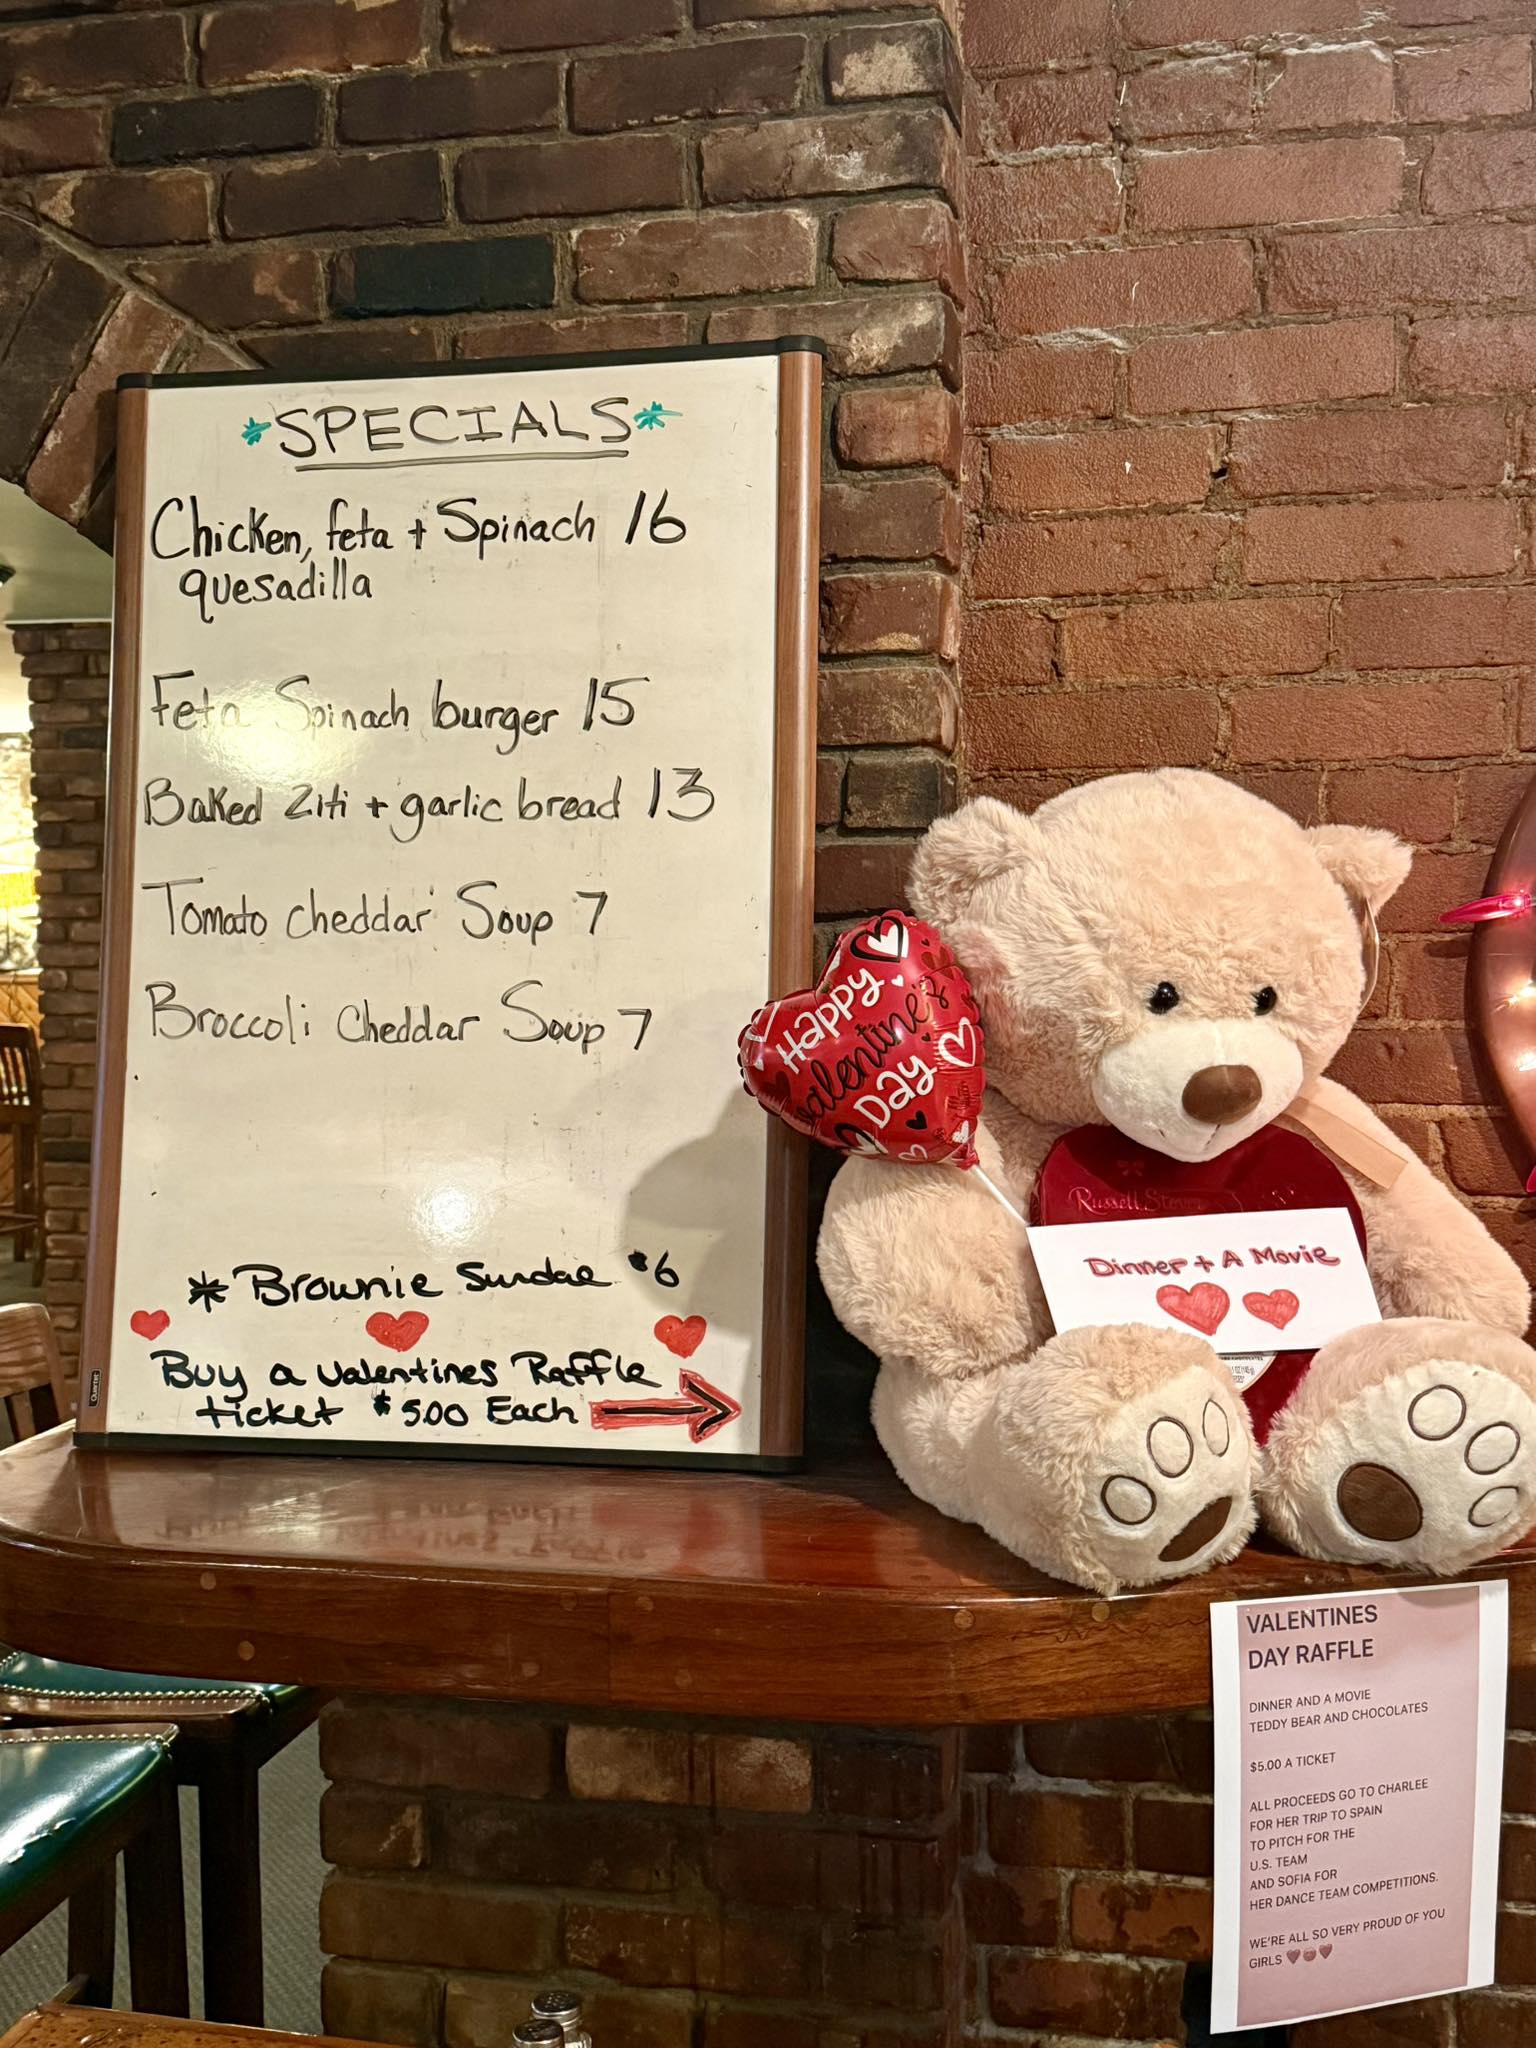 *SPECIALS*
Chicken, feta + Spinach 16
quesadilla
Feta Spinach burger 15
Baked Ziti + garlic bread 13
Tomato cheddar Soup 7
Broccoli Cheddar Soup 7
* Brownie Sundae $6
Buy a Valentines Raffle
ticket $5.00 Each
Quartet
Happy
Valentine's
Day
Russell Stover
Dinner + A Movie
VALENTINES
DAY RAFFLE
DINNER AND A MOVIE
TEDDY BEAR AND CHOCOLATES
$5.00 A TICKET
ALL PROCEEDS GO TO CHARLEE
FOR HER TRIP TO SPAIN
TO PITCH FOR THE
U.S. TEAM
AND SOFIA FOR
HER DANCE TEAM COMPETITIONS.
WE'RE ALL SO VERY PROUD OF YOU
GIRLS